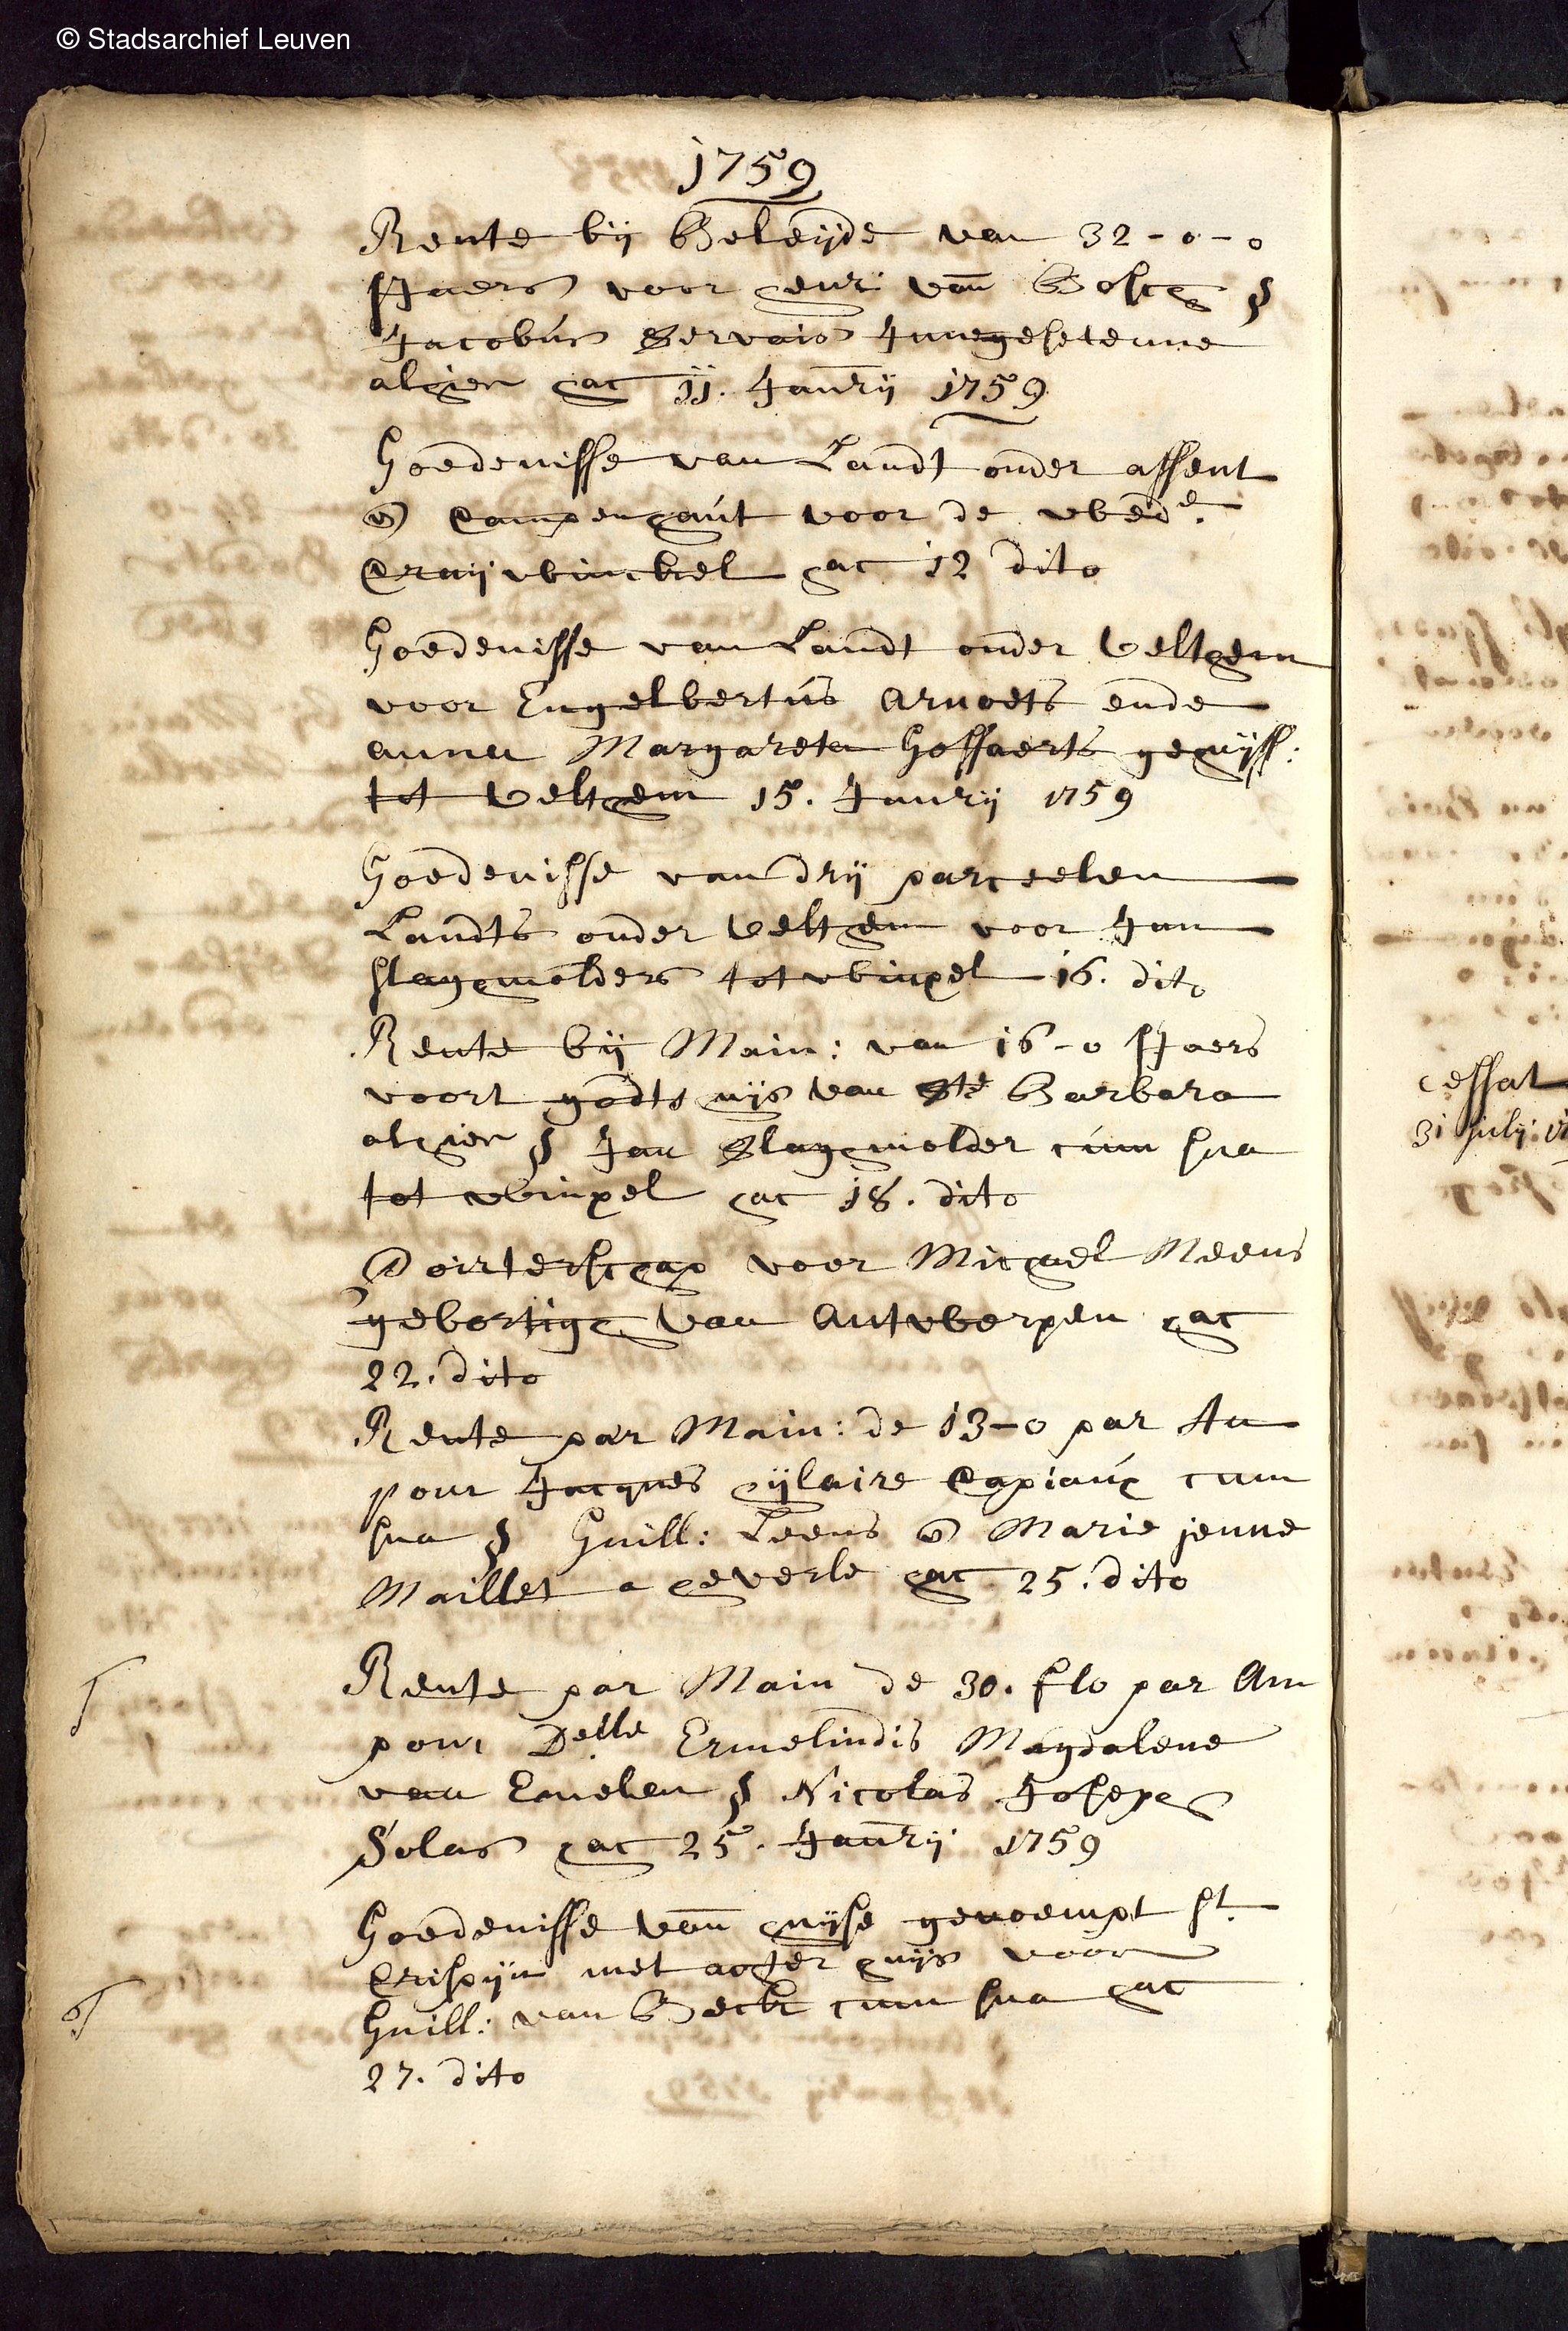 © Stadsarchief Leuven
1759
Rente bij Beleijde van 32-0-0
sJaers voor henr: van Bosch §
Jacobus Servais Innegesetenne
alhier hac 11. Januarij 1759
Goedenisse van Landt onder assent
en Campenhaut voor de wede.
Craijwinckel hac 12 dito
Goedenisse van Landt onder Velthem
voor Engelbertus Arnoets ende
anna Margareta Goffaerts gehuijss:
tot Velthem 15. Janrij 1759
Goedenisse van drij parceelen
Landts onder Velthem voor Jan
slaghmolders tot winxel 16. dito
Rente bij Main: van 16-0 sJaers
voort godtshuijs van Ste Barbara
alhier § Jan Slaghmolder cum sua
tot winxel hac 18. dito
Poirterschap voor Michael Meens
gebortigh van Antwerpen hac
22. dito
Rente par Main: de 13-0 par An
pour Jacques hijlaire Capiaux cum
sua § Guill: Leens en Marie jenne
Maillet a heverle hac 25. dito
Rente par Main de 30. flo par An
pour Delle Ermelindis Magdalene
van Emelen § Nicolas Joseph
Solas hac 25. Januarij 1759
Goedenisse van huijse genoempt St
Crispijn met achter huijs voor
Guill: van Beckt cum sua hac
27. dito
cessat
31 julij